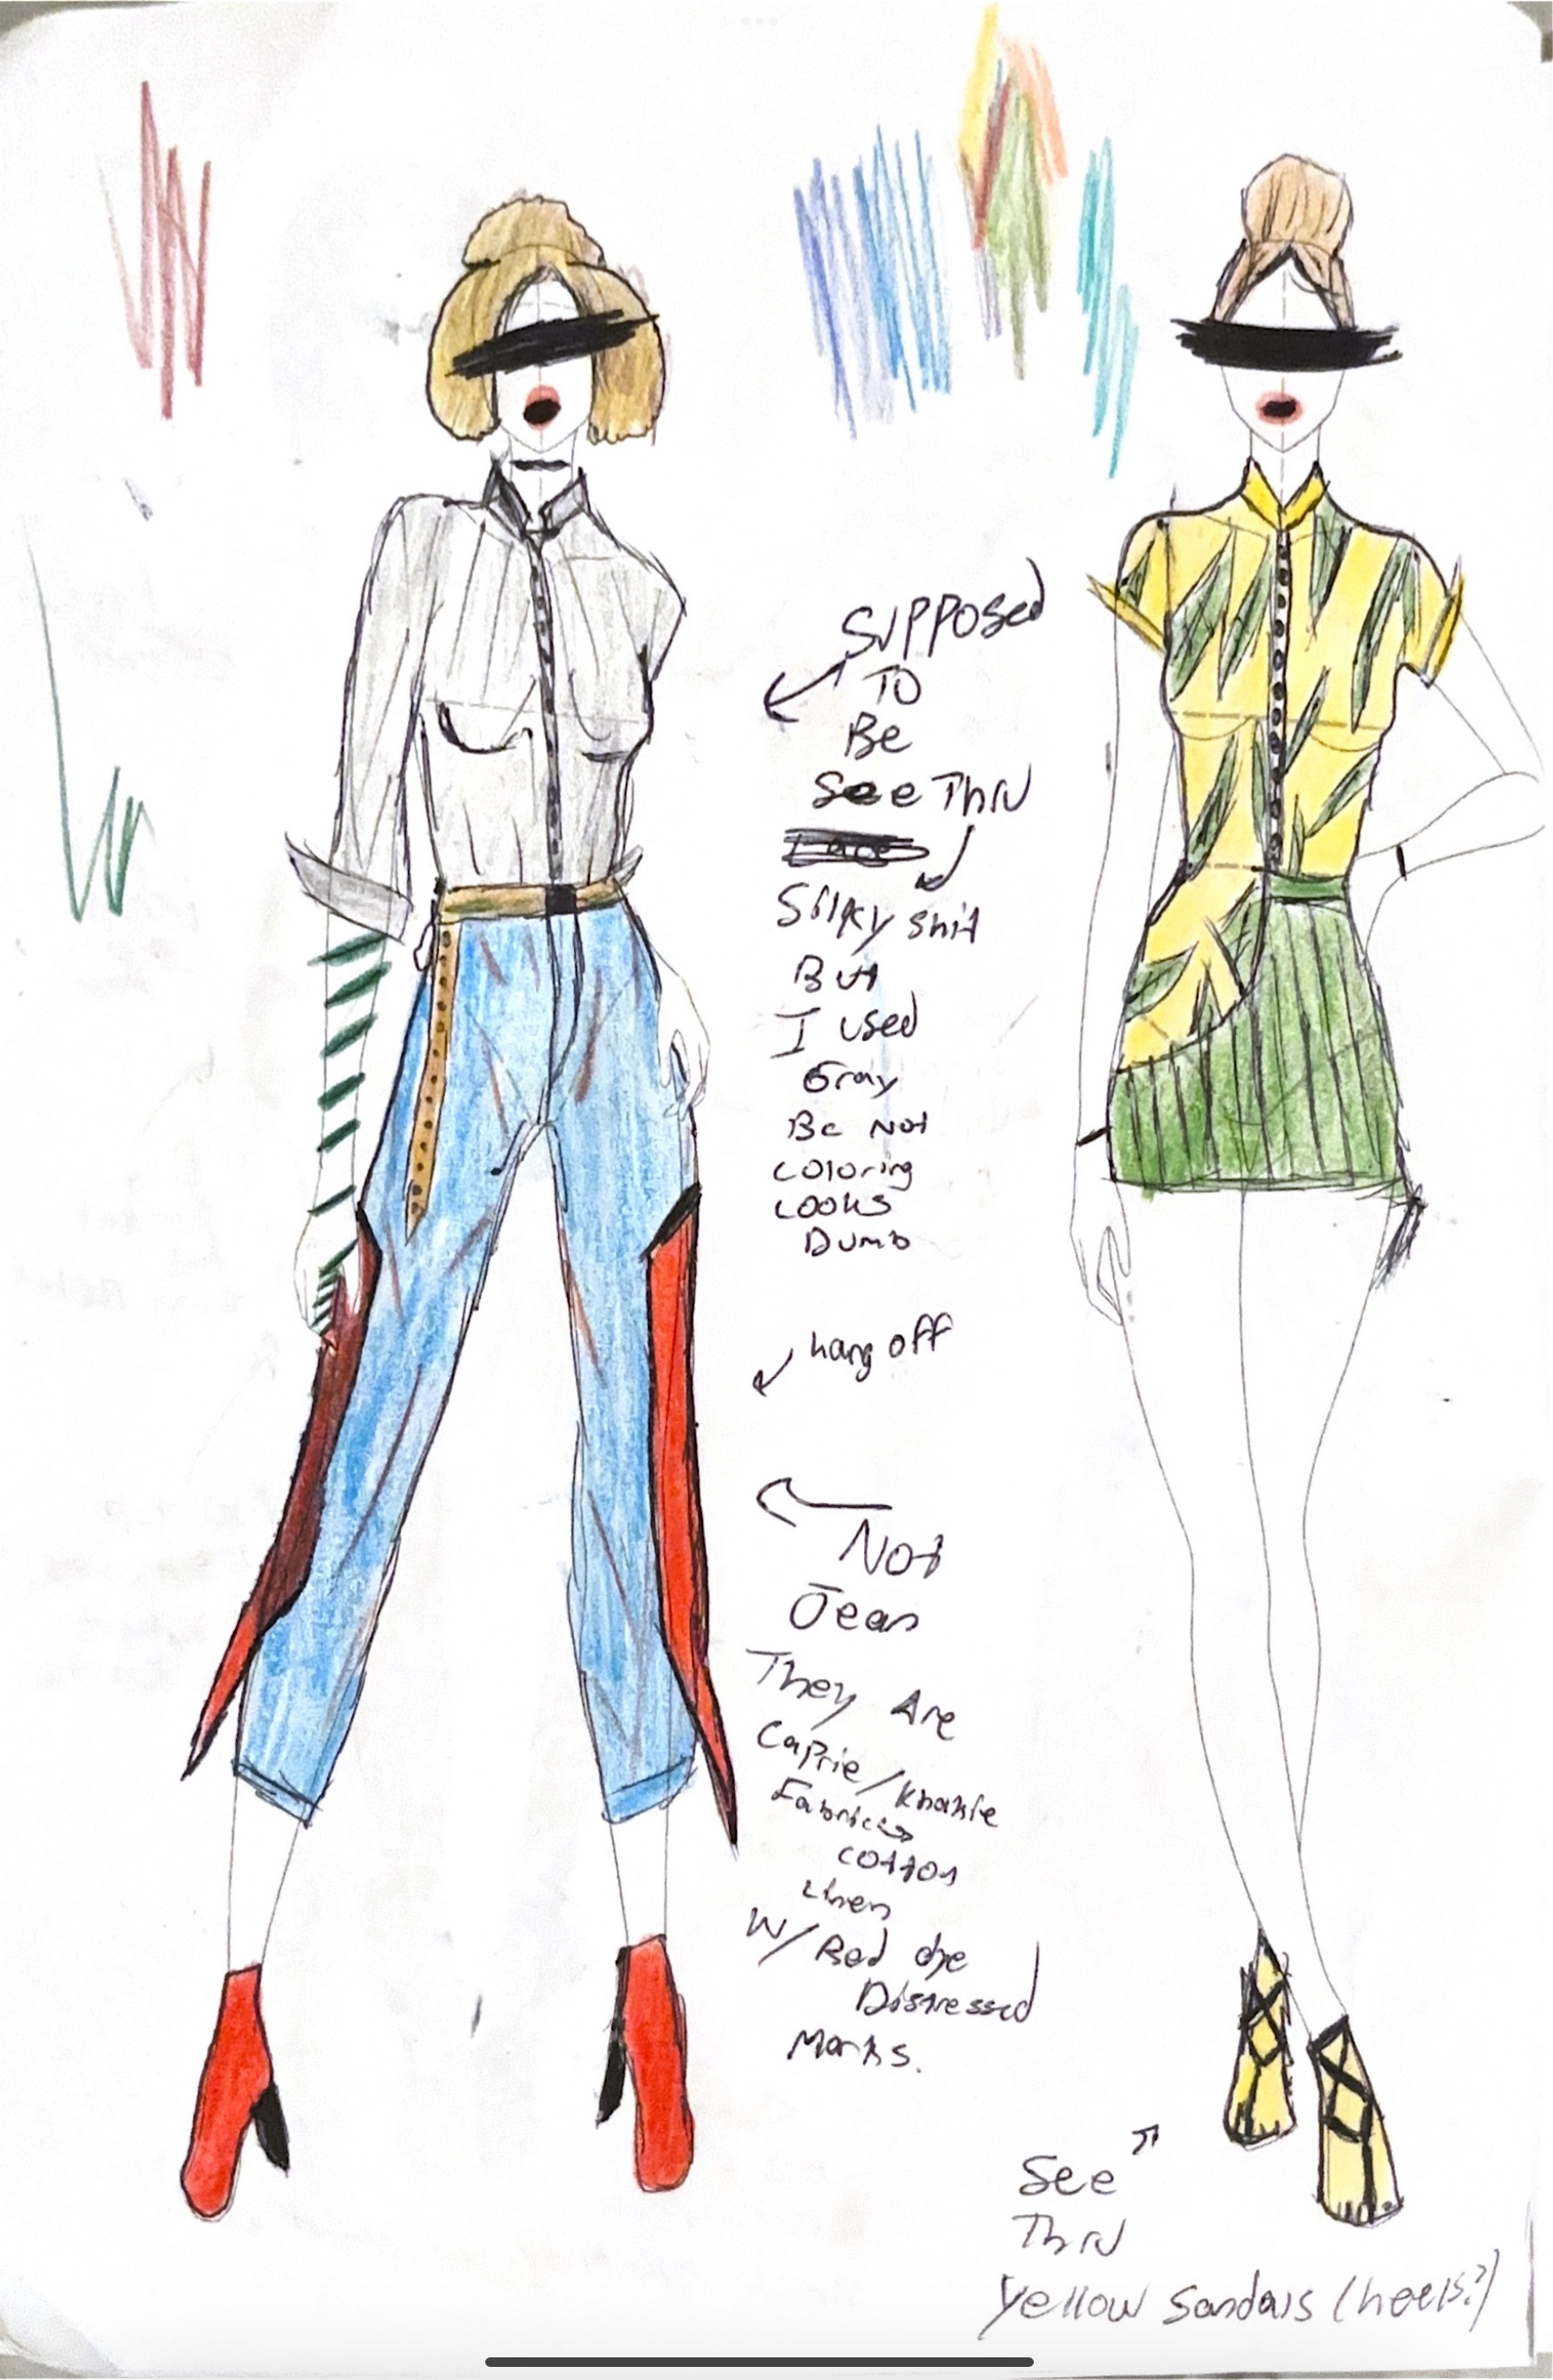 SUPPOSed
TO
Be
See Thru
Silky shit
But
I used
Gray
Bc Not
coloring
Looks
Dumb
hang off
Not
Jean
They Are
Caprie/Khakie
Fabric
cotton
Linen
W/ Red dye
Distressed
Marks.
See
Thru
Yellow Sandals (heels?)